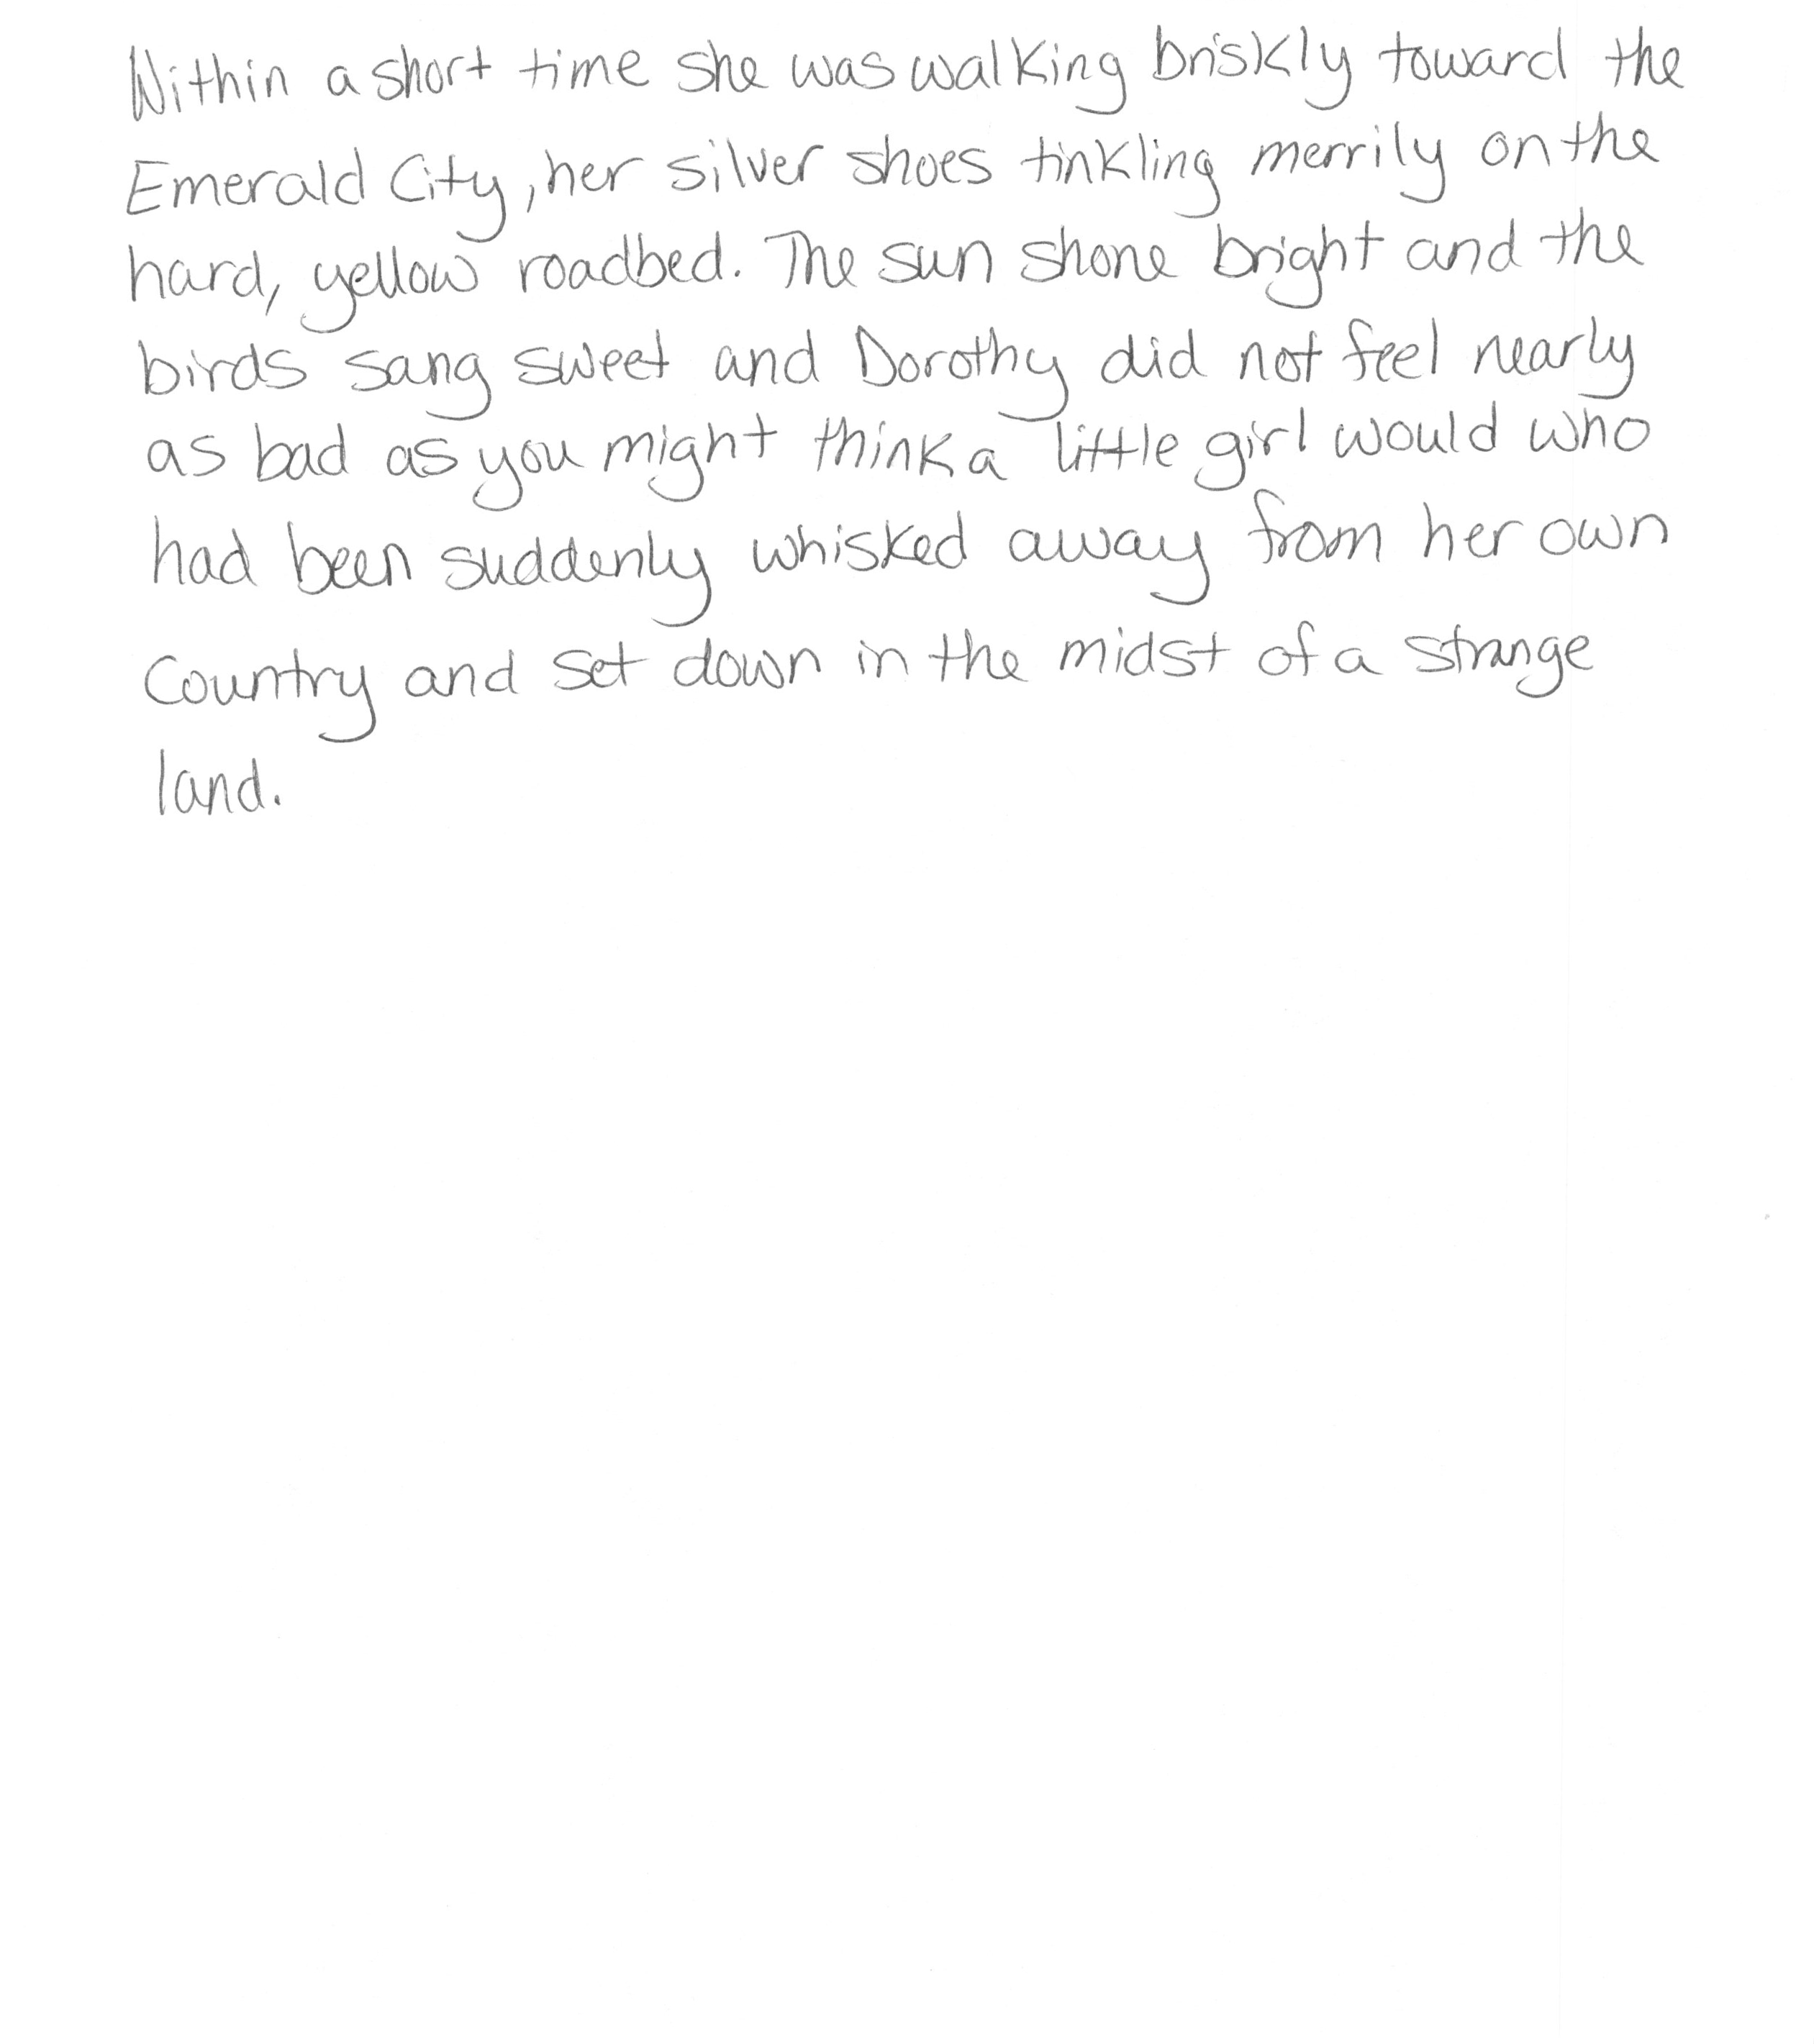 Within a short time she was walking briskly toward the
Emerald City, her silver shoes tinkling merrily on the
hard, yellow roadbed. The sun shone bright and the
birds sang sweet and Dorothy did not feel nearly
as bad as you might think a little girl would who
had been suddenly whisked away from her own
Country and set down in the midst of a strange
land.